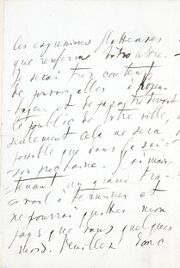 les expressions flatteuses
que renferme votre lettre.
Je serai très content
de pouvoir aller à
et de
le public de votre ville,
seulement cela ne sera
possible que dans la saison
prochaine. J'ai main-
tenant un grand tra-
vail à terminer et
ne pourrai quitter mon
pays que dans quelques
mois. Veuillez donc